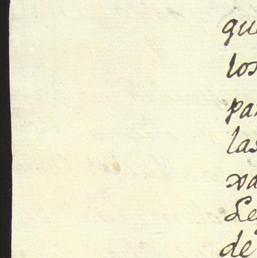 que
los
par
las
xa
Le
de